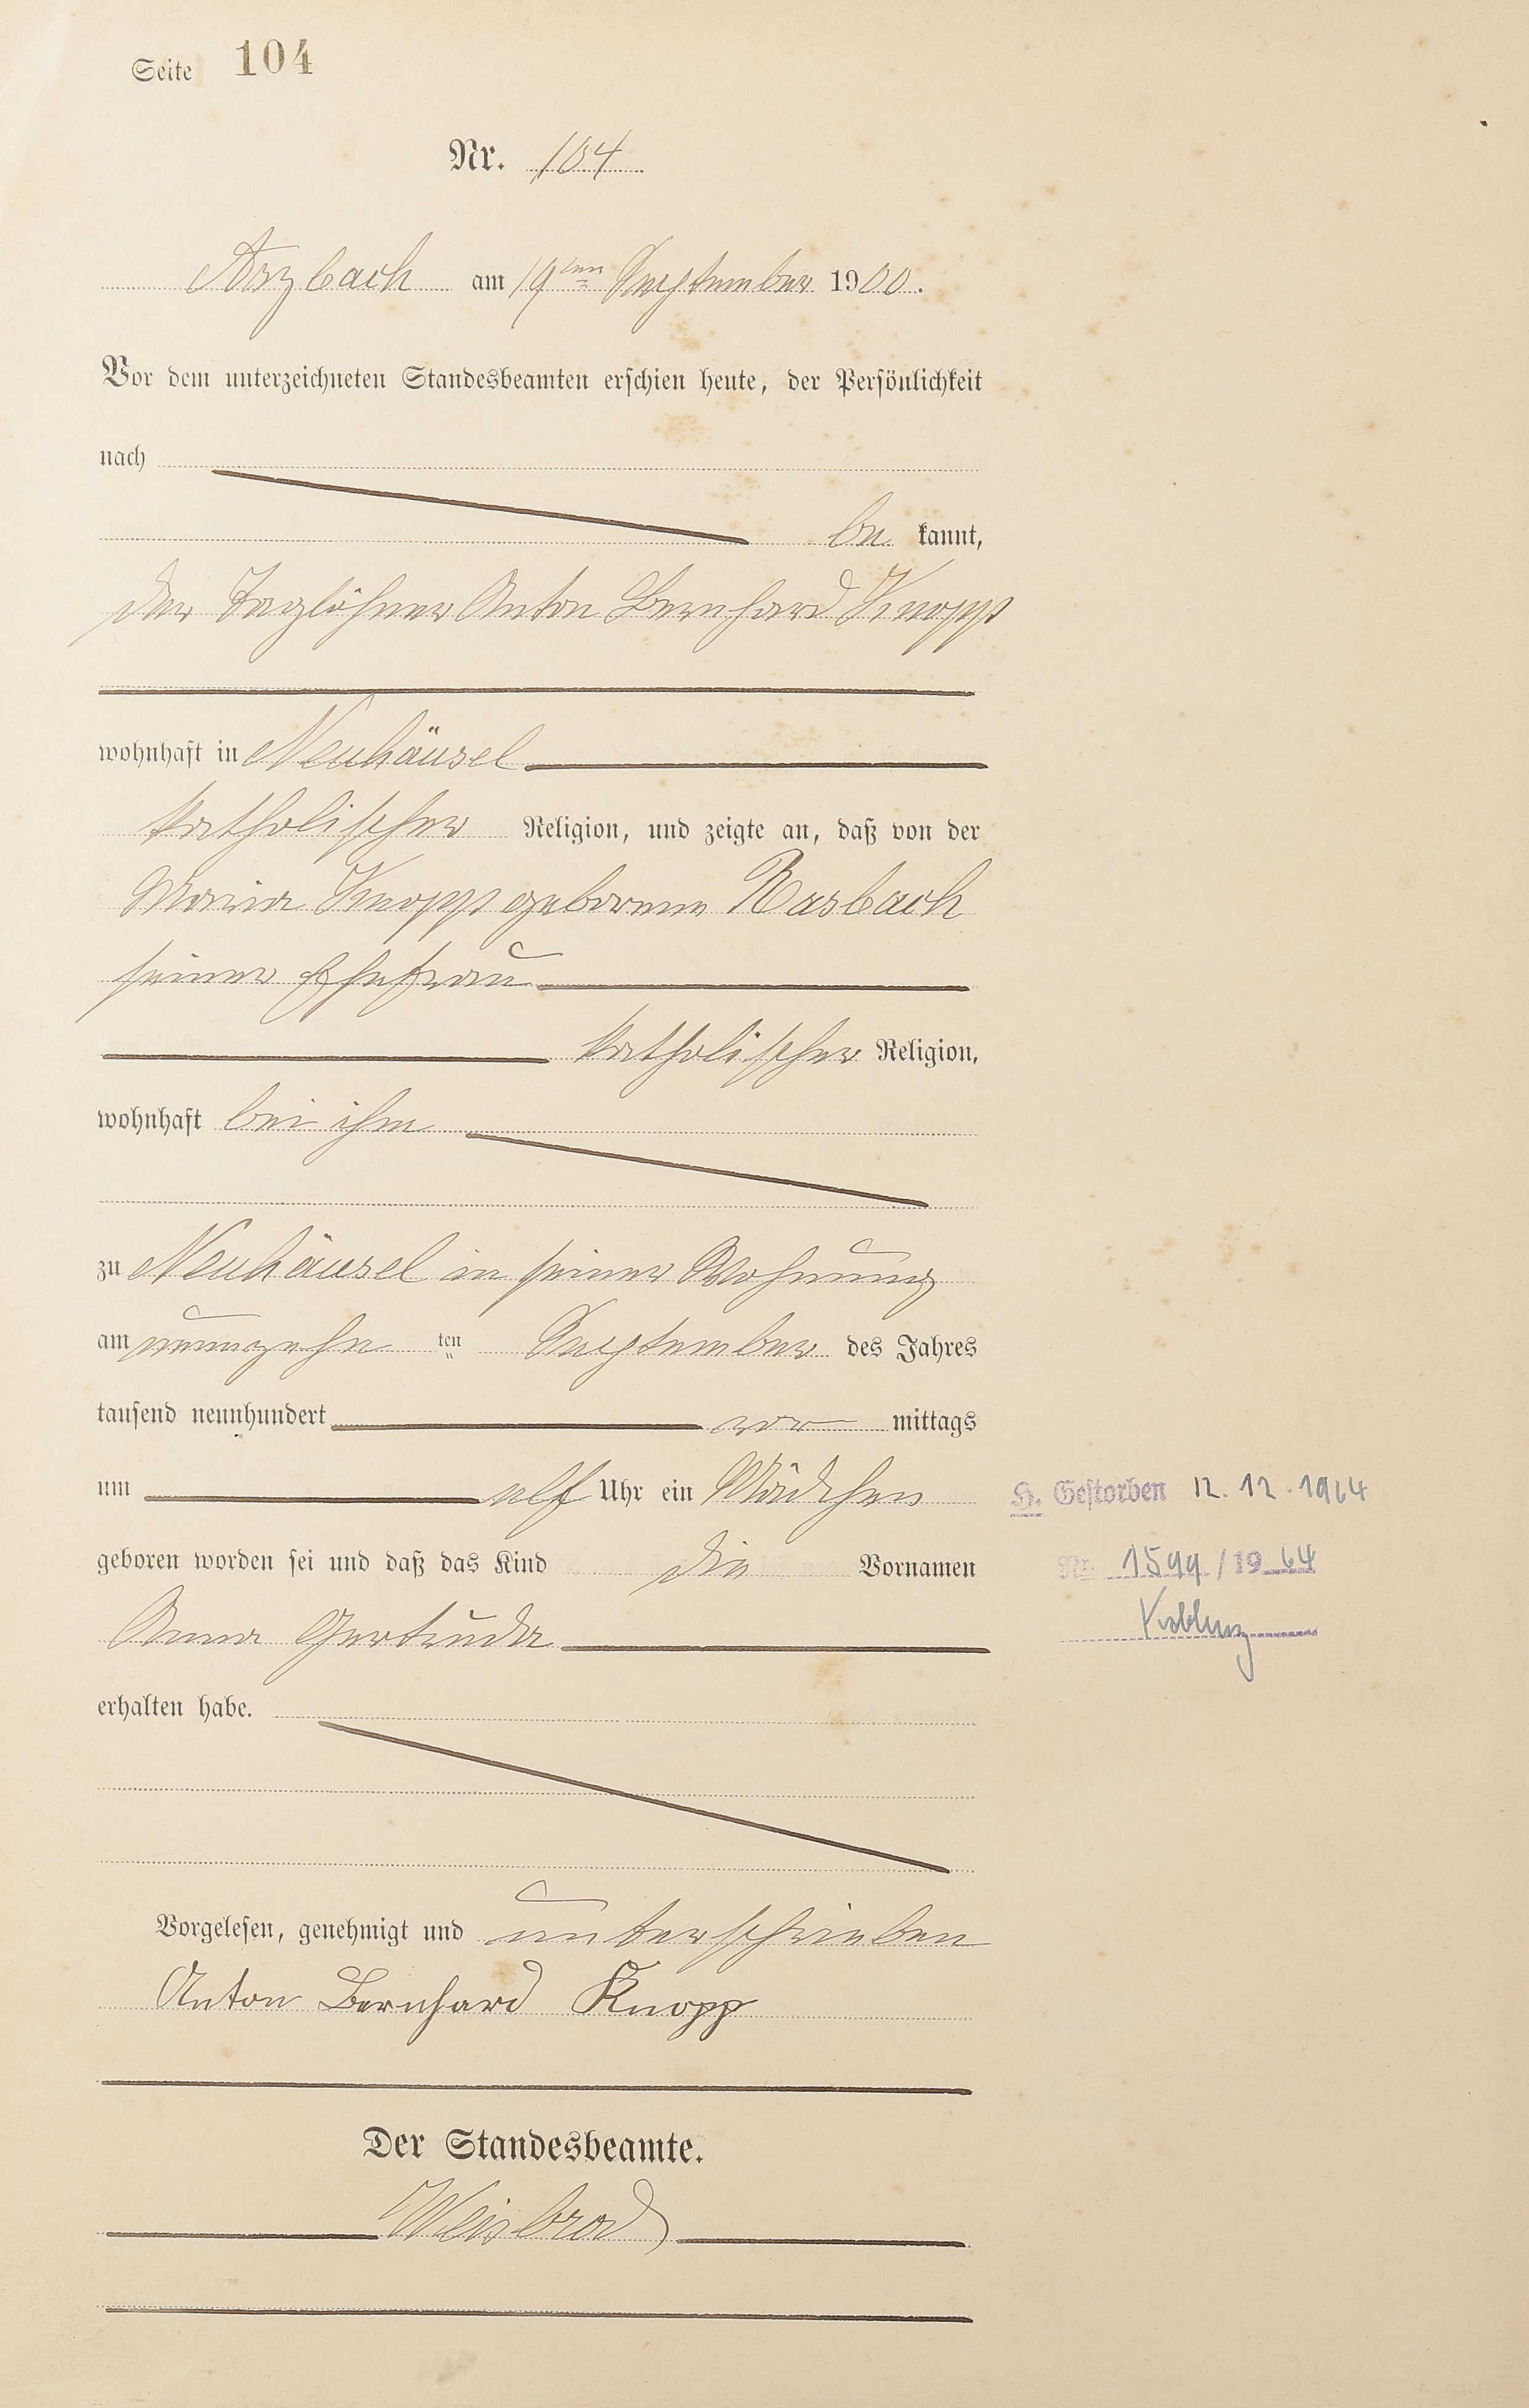 Seite 104
Nr. 104
Arzbach am 19ten September 1900.
Vor dem unterzeichneten Standesbeamten erschien heute, der Persönlichkeit
nach
be kannt,
der Taglöhner Anton Bernhard Knopp
wohnhaft in Neuhäusel
katholischer Religion, und zeigte an, daß von der
Maria Knopp geborene Rasbach
seiner Ehefrau
katholischer Religion,
wohnhaft bei ihm
zu Neuhäusel in seiner Wohnung
am neunzehn ten September des Jahres
tausend neunhundert vor mittags
um elf Uhr ein Mädchen
geboren worden sei und daß das Kind die Vornamen
Anna Gertruda
erhalten habe.
H. Gestorben 12.12.1964
Nr. 1599/1964
Koblenz
Vorgelesen, genehmigt und unterschrieben
Anton Bernhard Knopp
Der Standesbeamte.
Weisbrod